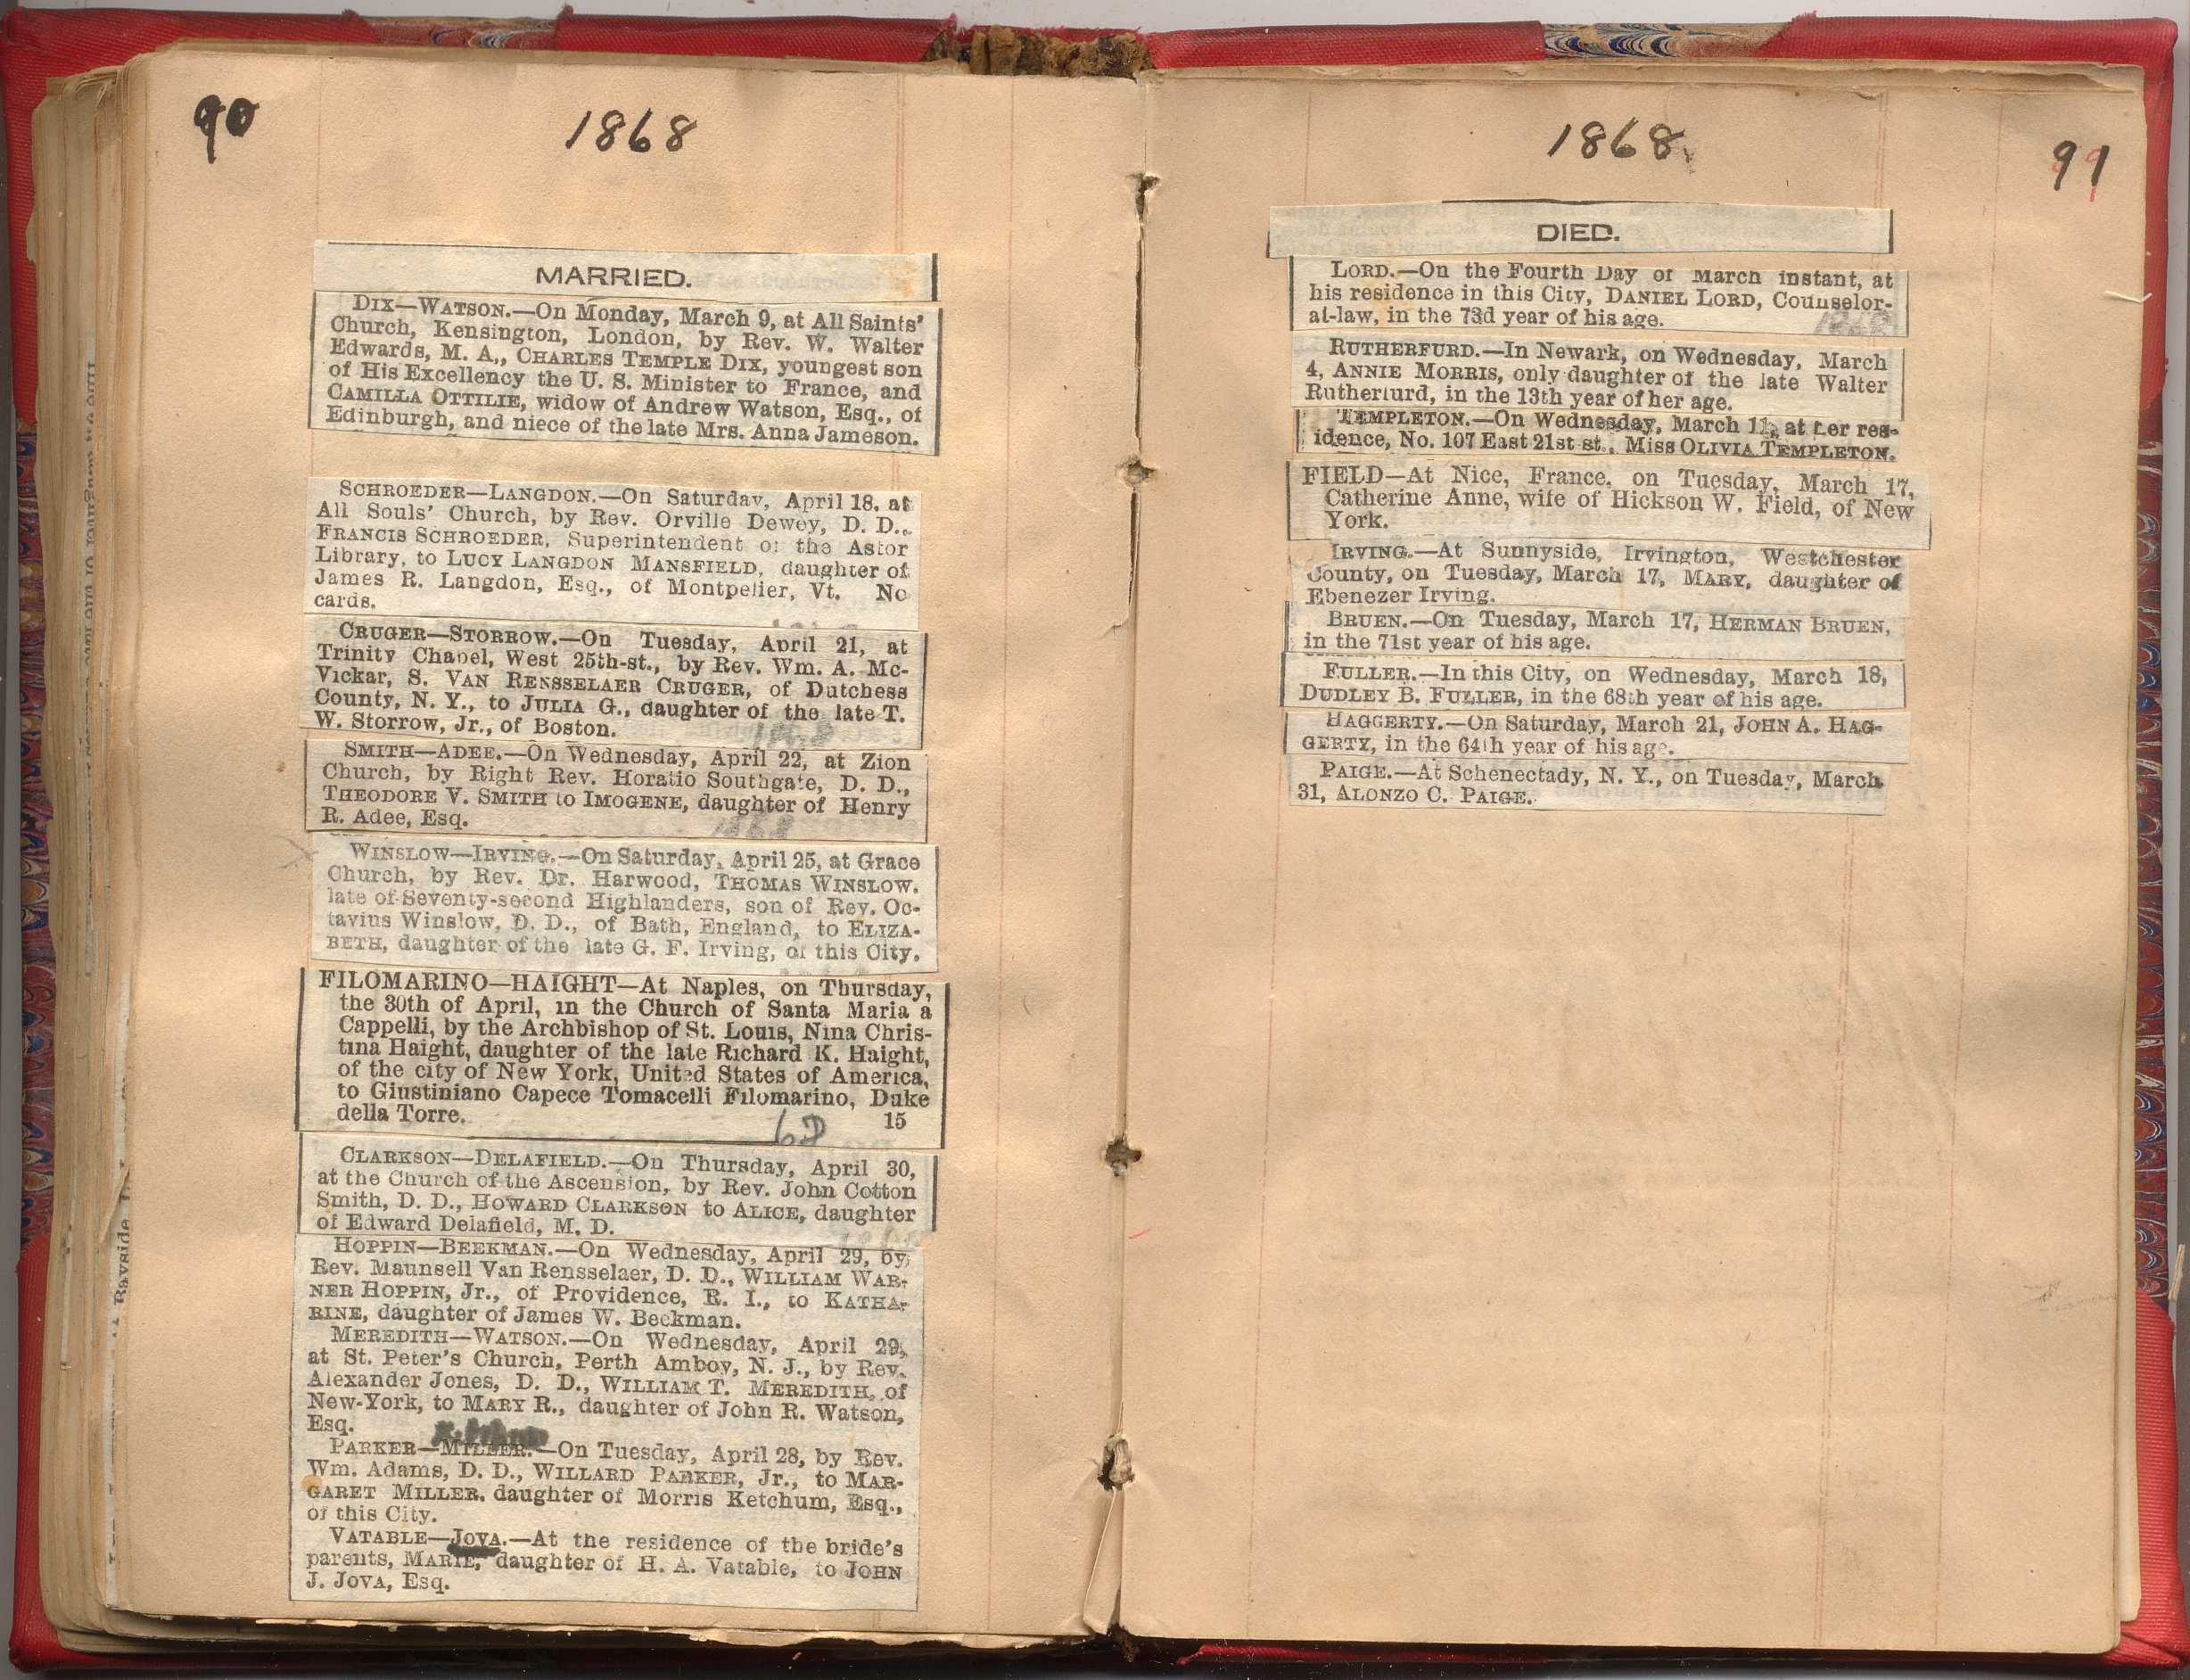 90
1868
MARRIED.
DIX—WATSON.—On Monday, March 9, at All Saints'
Church, Kensington, London, by Rev. W. Walter
Edwards, M. A., CHARLES TEMPLE DIX, youngest son
of His Excellency the U. S. Minister to France, and
CAMILLA OTTILIE, widow of Andrew Watson, Esq., of
Edinburgh, and niece of the late Mrs. Anna Jameson.
SCHROEDER—LANGDON.—On Saturday, April 18, at
All Souls' Church, by Rev. Orville Dewey, D. D.,
FRANCIS SCHROEDER, Superintendent of the Astor
Library, to LUCY LANGDON MANSFIELD, daughter of
James R. Langdon, Esq., of Montpelier, Vt. No
cards.
CRUGER—STORROW.—On Tuesday, April 21, at
Trinity Chapel, West 25th-st., by Rev. Wm. A. Mc-
Vickar, S. VAN RENSSELAER CRUGER, of Dutchess
County, N. Y., to JULIA G., daughter of the late T.
W. Storrow, Jr., of Boston.
1868
SMITH—ADEE.—On Wednesday, April 22, at Zion
Church, by Right Rev. Horatio Southgate, D. D.,
THEODORE V. SMITH to IMOGENE, daughter of Henry
R. Adee, Esq.
1868
WINSLOW—IRVING.—On Saturday, April 25, at Grace
Church, by Rev. Dr. Harwood, THOMAS WINSLOW,
late of Seventy-second Highlanders, son of Rev. Oc-
tavius Winslow, D. D., of Bath, England, to ELIZA-
BETH, daughter of the late G. F. Irving, of this City.
FILOMARINO—HAIGHT—At Naples, on Thursday,
the 30th of April, in the Church of Santa Maria a
Cappelli, by the Archbishop of St. Louis, Nina Chris-
tina Haight, daughter of the late Richard K. Haight,
of the city of New York, United States of America,
to Giustiniano Capece Tomacelli Filomarino, Duke
della Torre. 15
CLARKSON—DELAFIELD.—On Thursday, April 30,
at the Church of the Ascension, by Rev. John Cotton
Smith, D. D., HOWARD CLARKSON to ALICE, daughter
of Edward Delafield, M. D.
HOPPIN—BEEKMAN.—On Wednesday, April 29, by
Rev. Maunsell Van Rensselaer, D. D., WILLIAM WAR-
NER HOPPIN, Jr., of Providence, R. I., to KATHA-
RINE, daughter of James W. Beekman.
MEREDITH—WATSON.—On Wednesday, April 29,
at St. Peter's Church, Perth Amboy, N. J., by Rev.
Alexander Jones, D. D., WILLIAM T. MEREDITH, of
New-York, to MARY R., daughter of John R. Watson,
Esq.
PARKER—MILLER.—On Tuesday, April 28, by Rev.
Wm. Adams, D. D., WILLARD PARKER, Jr., to MAR-
GARET MILLER, daughter of Morris Ketchum, Esq.,
of this City.
VATABLE—JOVA.—At the residence of the bride's
parents, MARIE, daughter of H. A. Vatable, to JOHN
J. JOVA, Esq.
1868.
91
DIED.
LORD.—On the Fourth Day of March instant, at
his residence in this City, DANIEL LORD, Counselor-
at-law, in the 73d year of his age.
1868
RUTHERFURD.—In Newark, on Wednesday, March
4, ANNIE MORRIS, only daughter of the late Walter
Rutherfurd, in the 13th year of her age.
TEMPLETON.—On Wednesday, March 11, at her res-
idence, No. 107 East 21st st., Miss OLIVIA TEMPLETON.
FIELD—At Nice, France, on Tuesday, March 17,
Catherine Anne, wife of Hickson W. Field, of New
York.
IRVING.—At Sunnyside, Irvington, Westchester
County, on Tuesday, March 17, MARY, daughter of
Ebenezer Irving.
BRUEN.—On Tuesday, March 17, HERMAN BRUEN,
in the 71st year of his age.
FULLER.—In this City, on Wednesday, March 18,
DUDLEY B. FULLER, in the 68th year of his age.
HAGGERTY.—On Saturday, March 21, JOHN A. HAG-
GERTY, in the 64th year of his age.
PAIGE.—At Schenectady, N. Y., on Tuesday, March
31, ALONZO C. PAIGE.